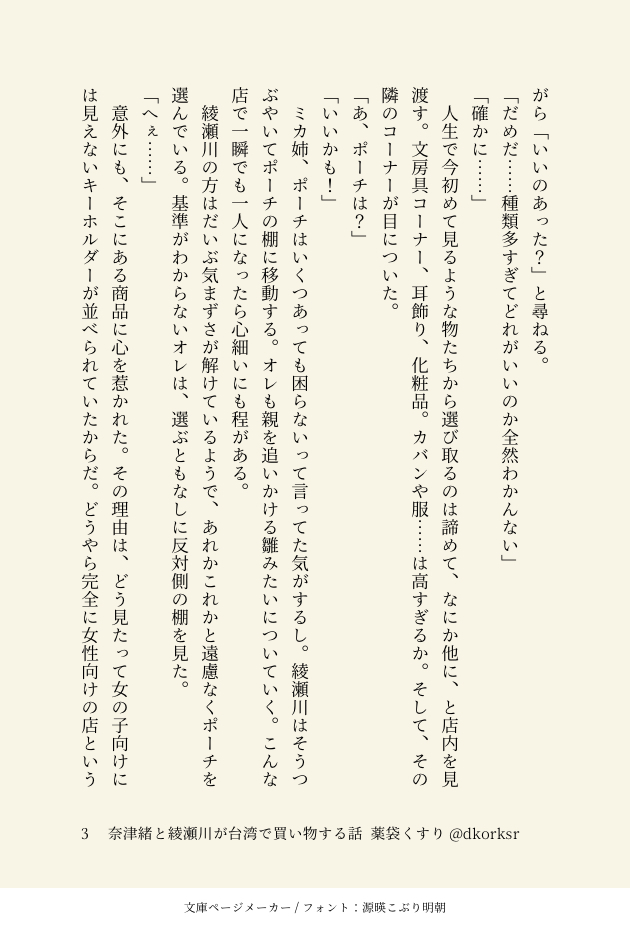 がら「いいのあった？」と尋ねる。
「だめだ……種類多すぎてどれがいいのか全然わかんない」
「確かに……」
　人生で今初めて見るような物たちから選び取るのは諦めて、なにか他に、と店内を見
渡す。文房具コーナー、耳飾り、化粧品。カバンや服……は高すぎるか。そして、その
隣のコーナーが目についた。
「あ、ポーチは？」
「いいかも！」
　ミカ姉、ポーチはいくつあっても困らないって言ってた気がするし。綾瀬川はそうつ
ぶやいてポーチの棚に移動する。オレも親を追いかける雛みたいについていく。こんな
店で一瞬でも一人になったら心細いにも程がある。
　綾瀬川の方はだいぶ気まずさが解けているようで、あれかこれかと遠慮なくポーチを
選んでいる。基準がわからないオレは、選ぶともなしに反対側の棚を見た。
「へぇ……」
　意外にも、そこにある商品に心を惹かれた。その理由は、どう見たって女の子向けに
は見えないキーホルダーが並べられていたからだ。どうやら完全に女性向けの店という
3　奈津緒と綾瀬川が台湾で買い物する話 薬袋くすり @dkorksr
文庫ページメーカー / フォント：源暎こぶり明朝